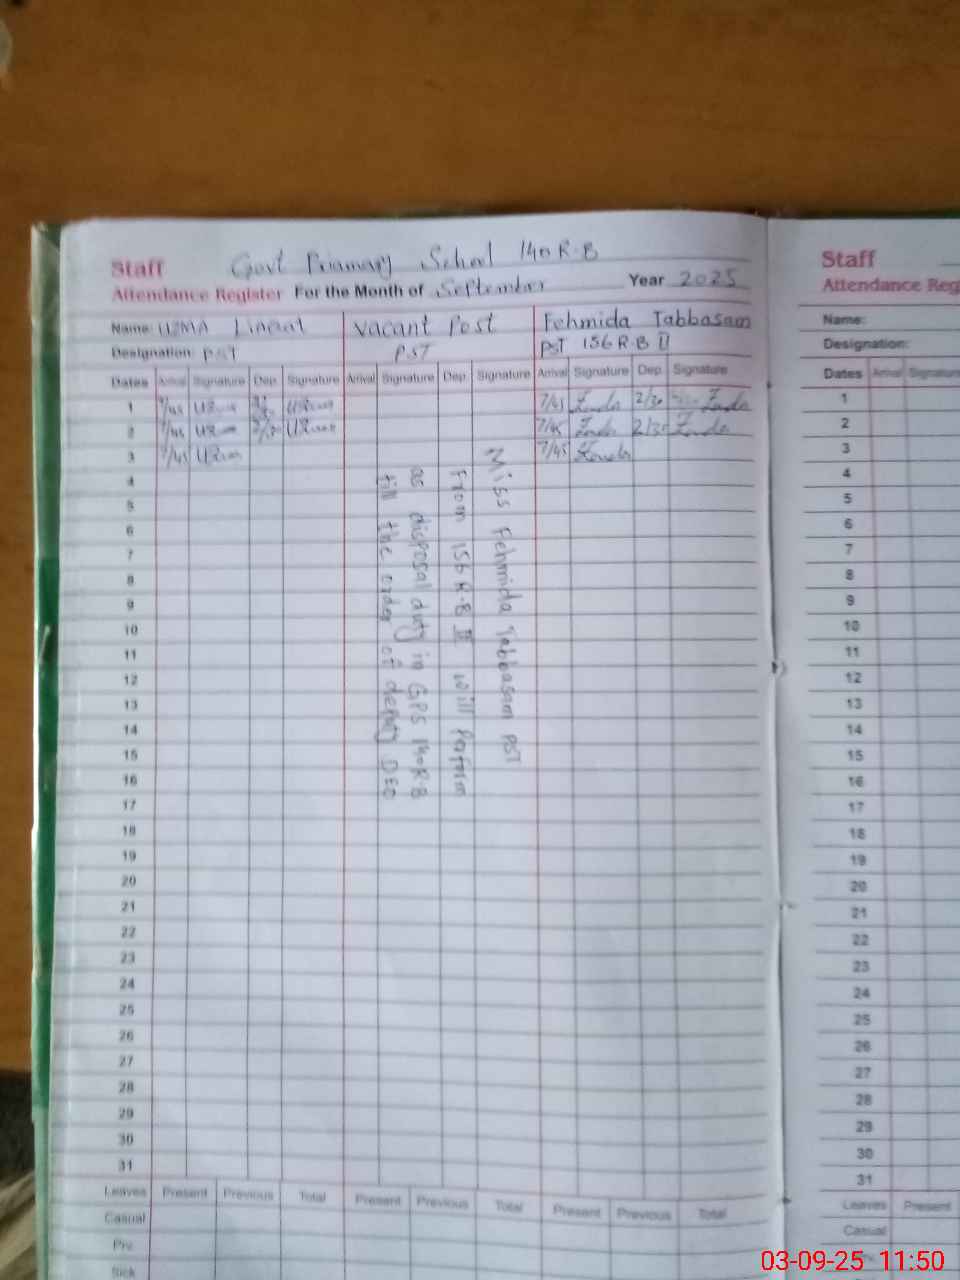 Staff Govt Priamary School 140 R-B
Attendance Register For the Month of September Year 2025
Name: UZMA
Designation: PST
Vacant Post
PST
Fehmida Tabbasam
PST 156 R-B II
Dates Arrival Signature Dep. Signature Arrival Signature Dep. Signature Arrival Signature Dep. Signature
1 7/45 7/45 2/30
2 7/45 2/30 7/45 2/30
3 7/45 7/45
4
5
6
7
8
9
10
11
12
13
14
15
16
17
18
19
20
21
22
23
24
25
26
27
28
29
30
31
Miss Fehmida Tabbasam PST
From 156 R-B II will Perform
as disposal duty in GPS 140 R-B
till the order of deputy DEO
Leaves Present Previous Total Present Previous Total Present Previous Total
Casual
Prv.
Sick
Staff
Attendance Reg
Name:
Designation:
Dates Arrival Signature
1
2
3
4
5
6
7
8
9
10
11
12
13
14
15
16
17
18
19
20
21
22
23
24
25
26
27
28
29
30
31
Leaves Present
Casual
03-09-25 11:50